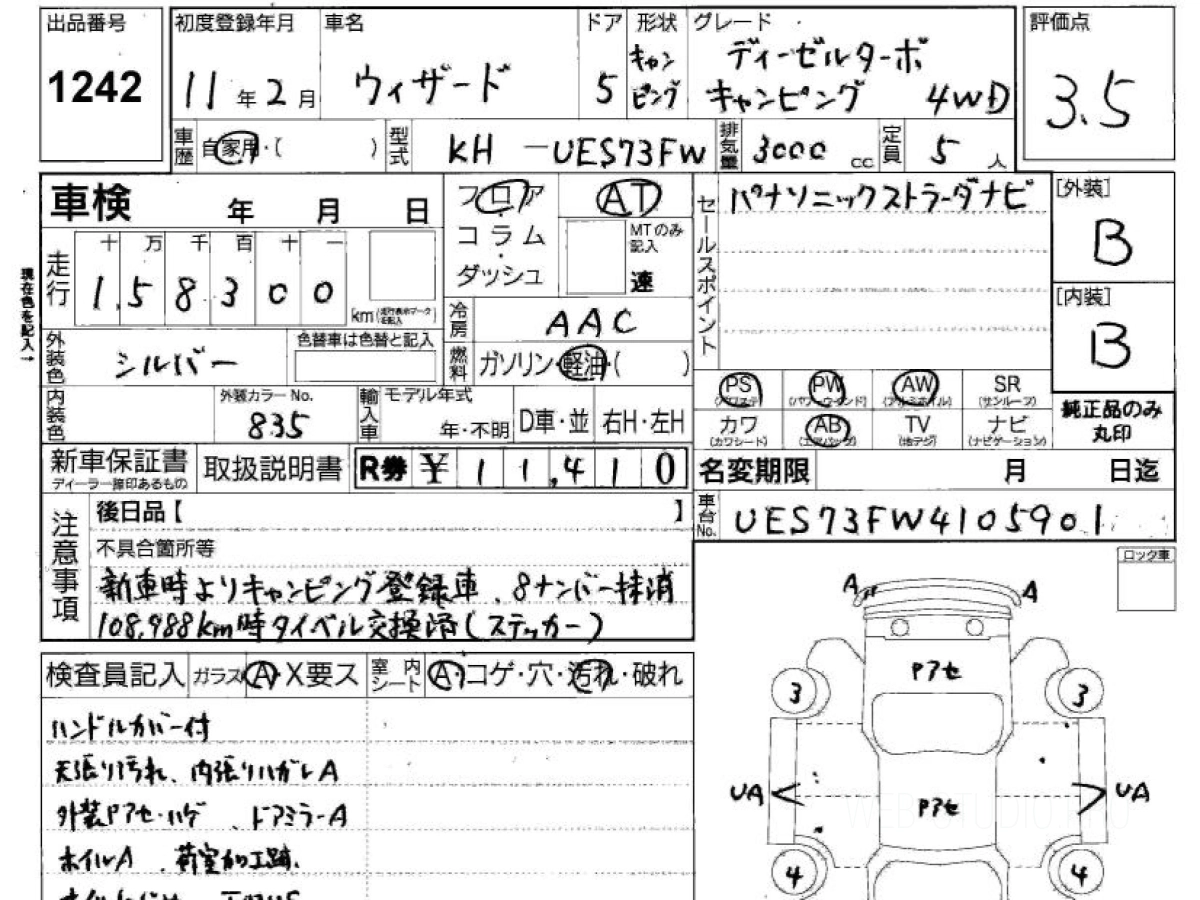 出品番号
1242
初度登録年月
11年2月
車名
ウィザード
ドア
5
形状
キャンピング
グレード
ディーゼルターボ
キャンピング 4WD
評価点
3.5
車歴 自家用・( )
型式 KH -UES73FW
排気量 3000 cc
定員 5 人
車検 年 月 日
走行
十 万 千 百 十 一
1,5 8 3 0 0
km
現在色を記入→
外装色 シルバー
色替車は色替と記入
内装色
外装カラーNo.
835
フロア
・
コラム
・
ダッシュ
AT
MTのみ記入
速
冷房 AAC
燃料 ガソリン・軽油・( )
輸入車
モデル年式
年・不明
D車・並
右H・左H
セールスポイント
パナソニックストラーダナビ
[外装]
B
[内装]
B
PS
(パワステ)
PW
(パワーウインド)
AW
(アルミホイル)
SR
(サンルーフ)
カワ
(カワシート)
AB
(エアバッグ)
TV
(地デジ)
ナビ
(ナビゲーション)
純正品のみ
丸印
新車保証書
ディーラー捺印あるもの
取扱説明書
R券 ¥ 1 1,4 1 0
名変期限 月 日迄
車台No. UES73FW4105901
注意事項
後日品【 】
不具合箇所等
新車時よりキャンピング登録車、8ナンバー抹消
108,988km時タイベル交換済(ステッカー)
ロック車
検査員記入
ガラス A・X要ス
室内シート A・コゲ・穴・汚れ・破れ
ハンドルカバー付
天張り汚れ、内張りハガレA
外装Pアセ・ハゲ、ドアミラーA
ホイルA、荷室加工跡、
A
A
Pアセ
3
3
UA
UA
Pアセ
4
4